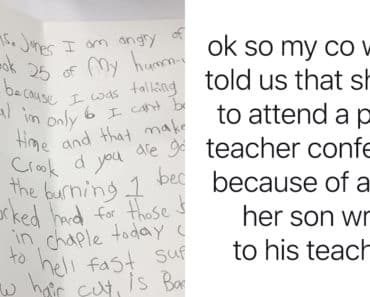 s. Jones I am angry of
ok 25 of my humm-
because I was talking
im only 6 I cant b
time and that make
Crook d you are go
the burning 1 bec
rked hard for those
in chaple today
to hell fast sup
w hair cut, is Ba
ok so my co w
told us that sh
to attend a p
teacher confe
because of a
her son wr
to his teach